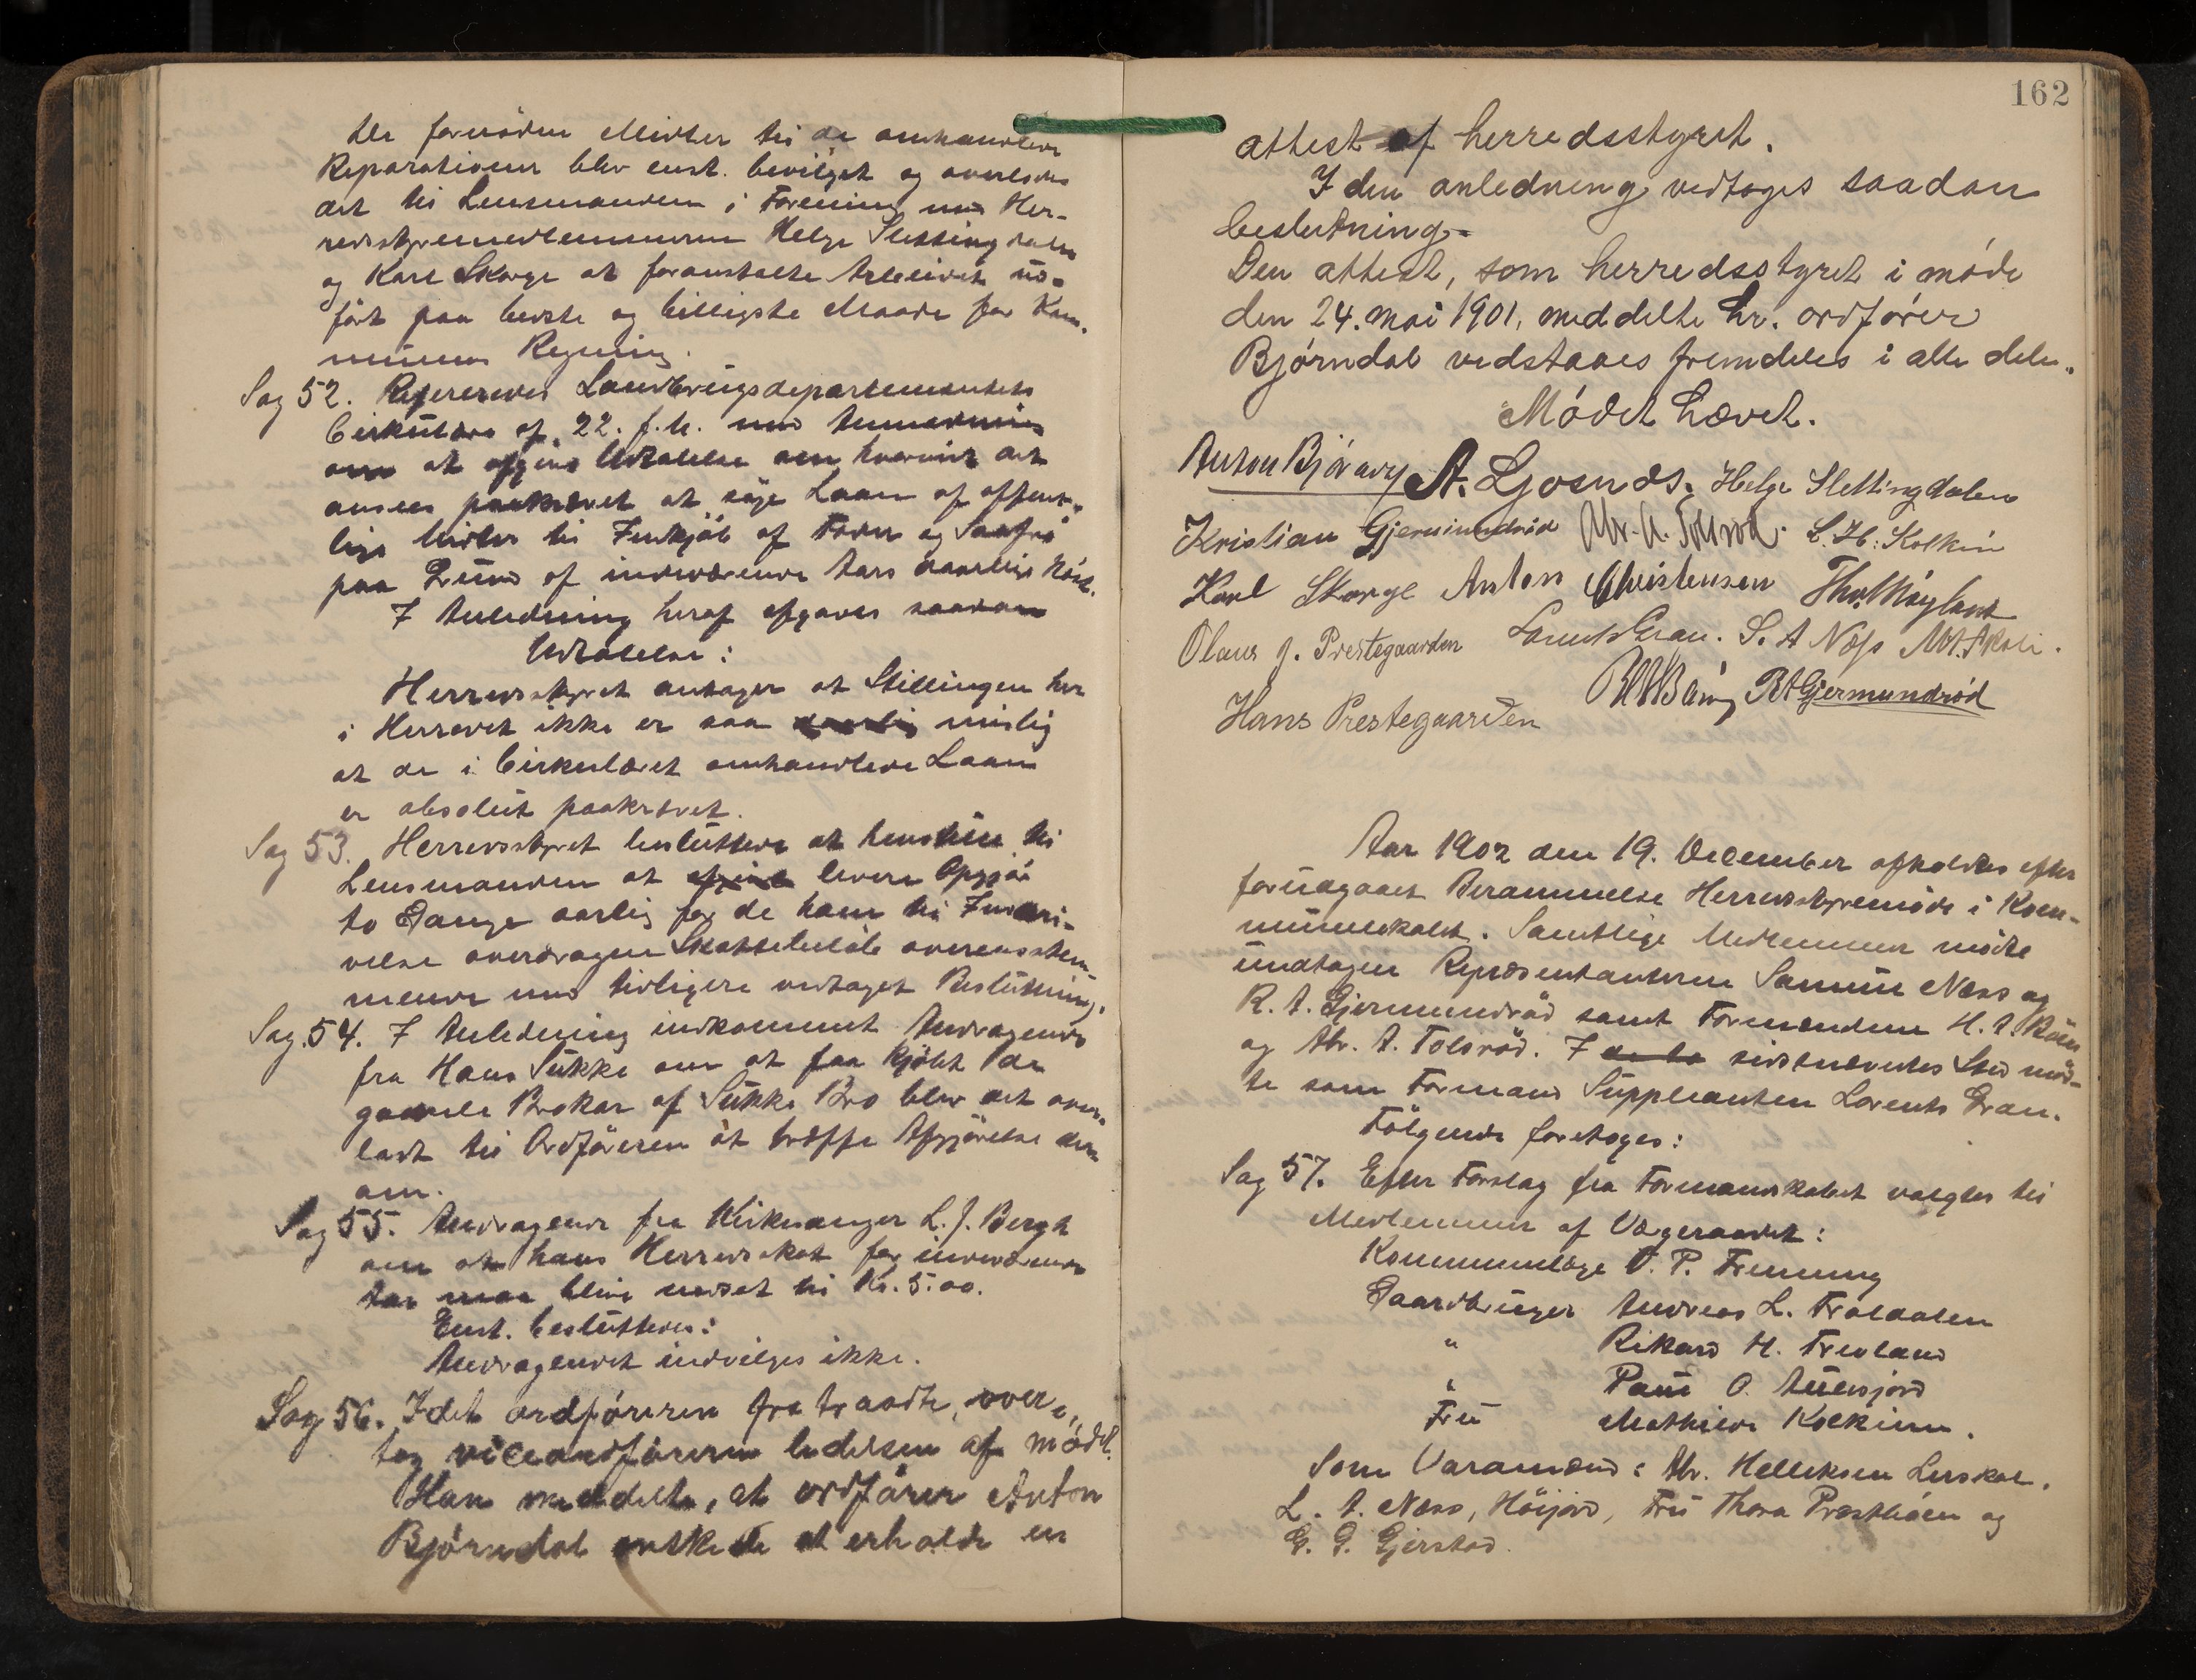 de fornödne Midler til de omhandlede
Reparationer blev enst. bevilget og overlodes
det til Lensmanden i Forening med Her-
redsstyremedlemmerne Helge Slettingdalen
og Karl Skorge at foranstalte Arbeidet ud-
ført paa bedste og billigste Maade for Kom-
munens Regning.
Sag 52. Refereredes Landbrugsdepartementets
Cirkulære af 22. f.M. med Anmodning
om at afgive Udtalelse om hvorvidt det
ansees paakrævet at søge Laan af offent-
lige Midler til Indkjøb af Foder og Saafrø
paa Grund af indeværende Aars daarlige Høst.
I Anledning heraf afgaves saadan
Udtalelse:
Herredsstyret antager at Stillingen her
i Herredet ikke er saa daarlig mislig
at de i Cirkulæret omhandlede Laan
er absolut paakrævet.
Sag 53. Herredsstyret besluttede at henstille til
Lensmanden at afgive levere Opgjør
to Gange aarlig for de ham til Inddri-
velse overdragne Skattebeløb overensstem-
mende med tidligere vedtaget Beslutning.
Sag 54. I Anledning indkommet Andragende
fra Hans Sukke om at faa kjøbt de
gamle Brokar af Sukke Bro blev det over-
ladt til Ordföreren at træffe Afgjørelse der-
om.
Sag 55. Andragende fra Kirkesanger L. J. Bergh
om at hans Herredsskat for indeværende
Aar maa blive nedsat til Kr. 5.00.
Enst. besluttedes:
Andragendet indvilges ikke.
Sag 56. Idet ordføreren fratraadte, over-
tog viceordføreren ledelsen af mødet.
Han meddelte, at ordfører Anton
Bjørndal ønskede at erholde en
162
attest af herredsstyret.
I den anledning vedtoges saadan
beslutning.
Den attest, som herredsstyret i møde
den 24. mai 1901, meddelte hr. ordfører
Bjørndal vedstaaes fremdeles i alle dele.
Mødet hævet.
Anton A. Helge Slettingdalen
Kristian Gjermundrød Abr. A. Tolsrød. L. H. Kolkin
Karl Skorge Anton Christensen
Olaus J. Prestegaarden Lorents Gran. S. A Næss
R A Gjermundrød
Hans Prestegaarden
Aar 1902 den 19. December afholdtes efter
forudgaaet Berammelse Herredsstyremöde i Kom-
munelokalet. Samtlige Medlemmer mödte
undtagen Repræsentanterne Samuel Næss og
R. A. Gjermundröd samt Formændene H. A. Bøen
og Abr. A. Tolsröd. I de to sidstnævntes Sted möd-
te som Formand Suppleanten Lorents Gran.
Fölgende foretoges:
Sag 57. Efter Forslag fra Formannskabet valgtes til
Medlemmer af Vægeraadet:
Kommunelæge O. P. Fremming
Gaardbruger Andreas L. Troldalen
" Rikard H. Trevland
" Paul O. Aulesjord
Fru Mathilde Kolkinn.
Som Varamænd: Abr. Helleksen Lerskal,
L. A. Næss, Höijord, Fru Thora Præsthöen og
G. G. Gjerstad.